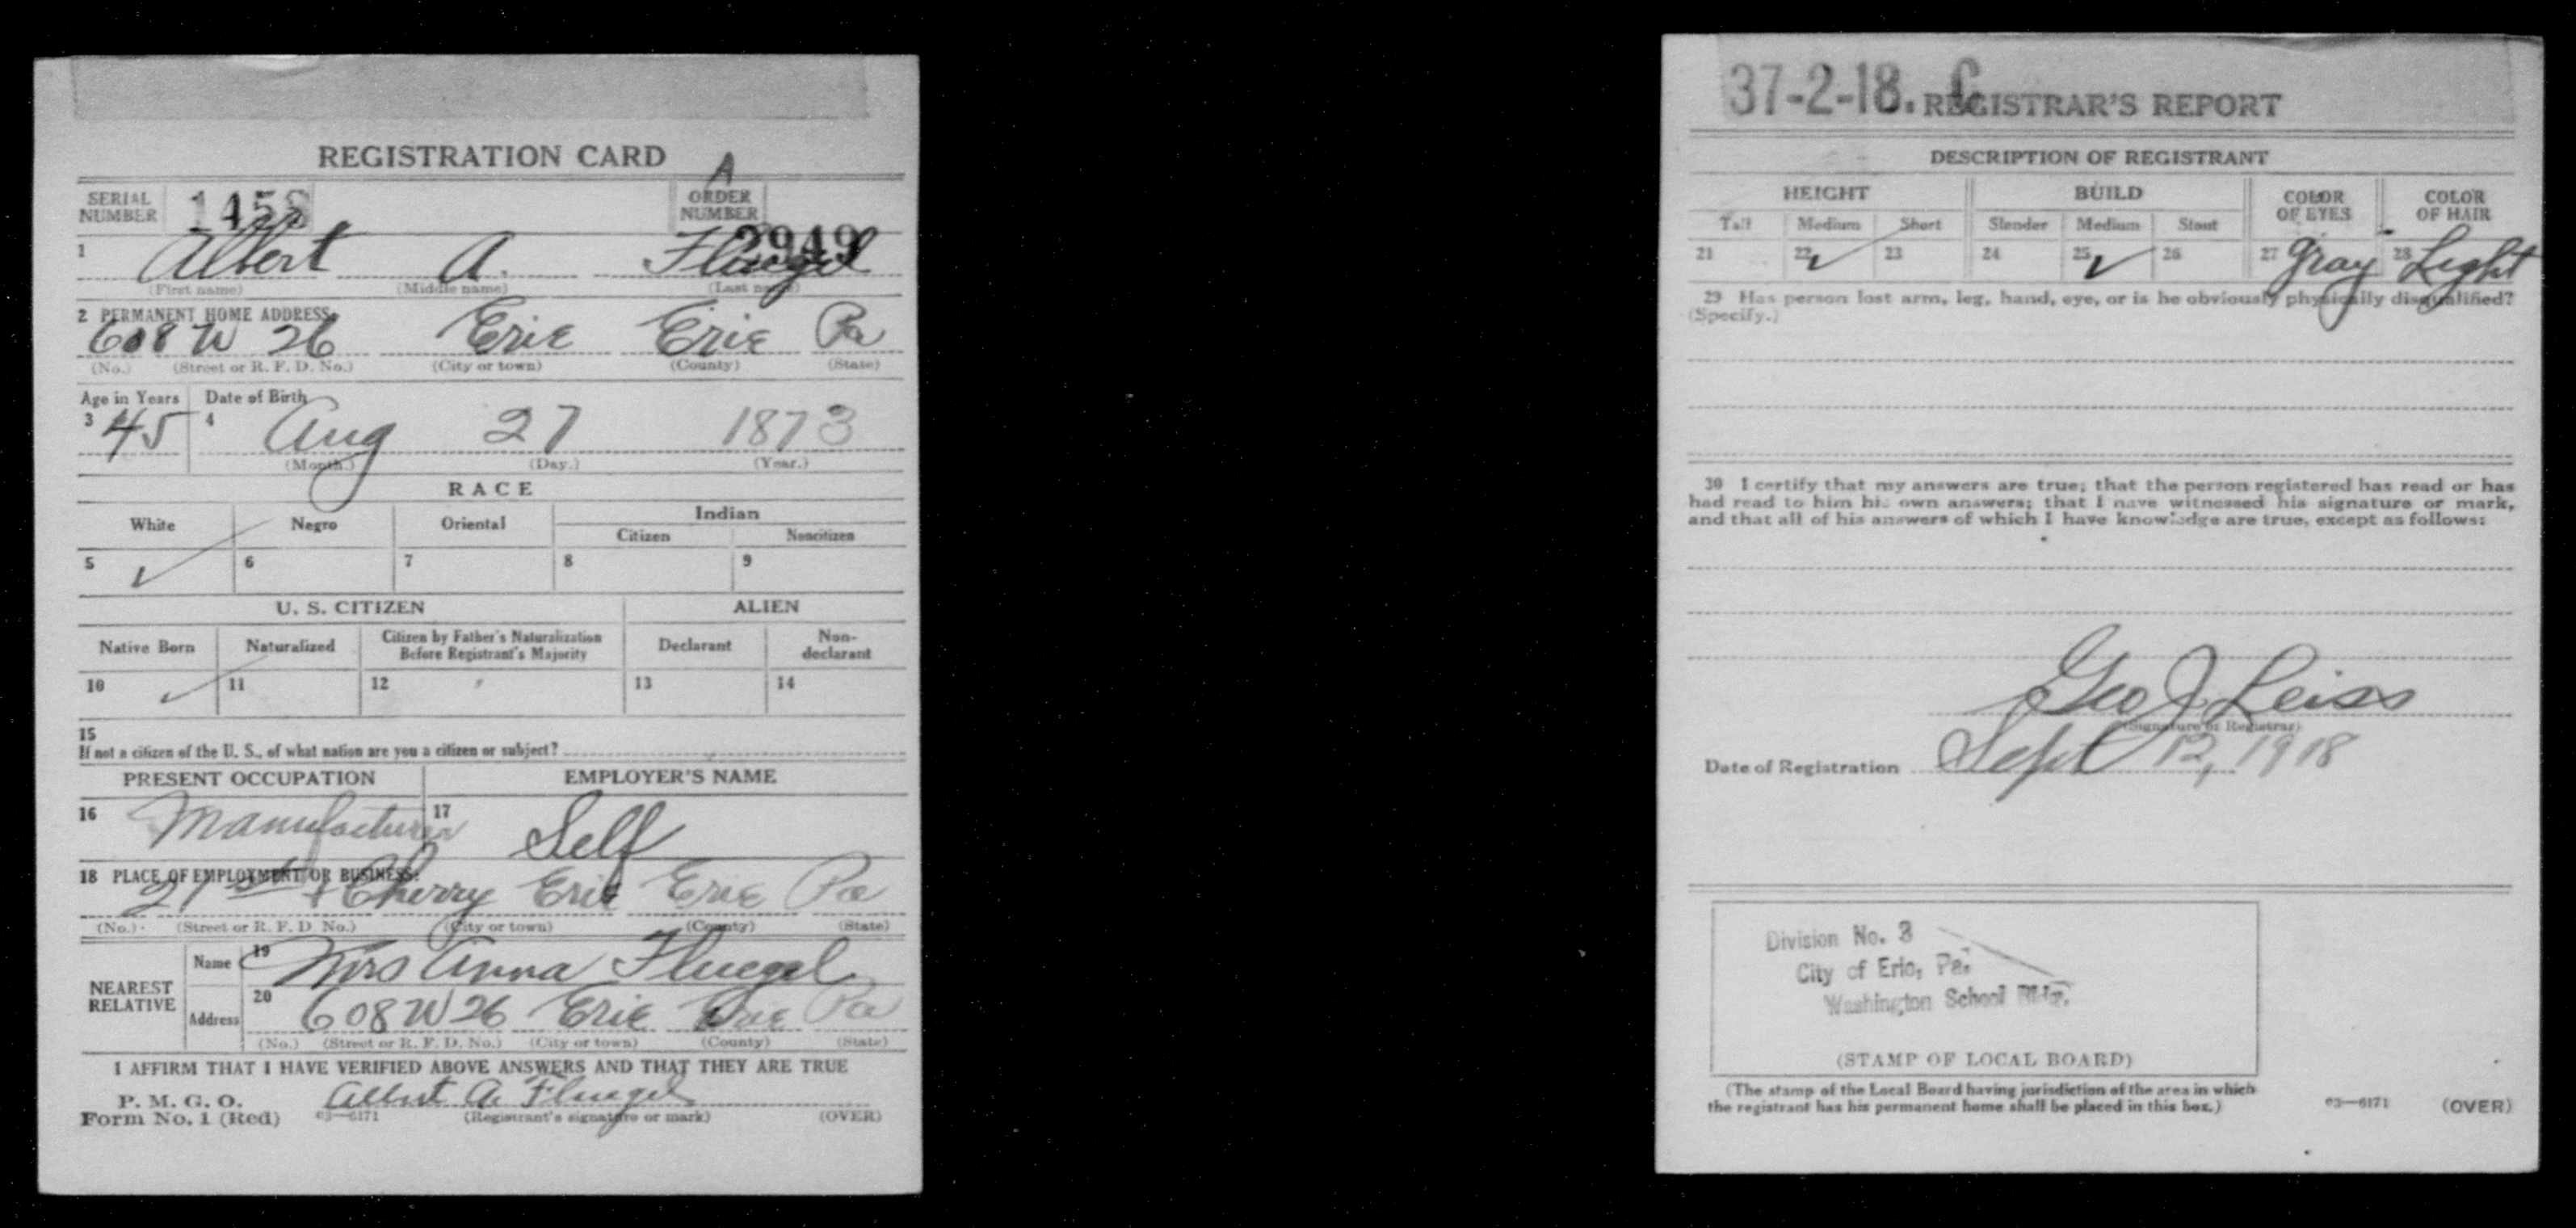 REGISTRATION CARD
SERIAL NUMBER 1458 A ORDER NUMBER 2949
1 Albert A. Fluegel
(First name) (Middle name) (Last name)
2 PERMANENT HOME ADDRESS:
608 W 26 Erie Erie Pa
(No.) (Street or R. F. D. No.) (City or town) (County) (State)
Age in Years Date of Birth
3 45 4 Aug 27 1873
(Month.) (Day.) (Year.)
RACE
White Negro Oriental Indian
Citizen Noncitizen
5 ✓ 6 7 8 9
U. S. CITIZEN ALIEN
Native Born Naturalized Citizen by Father's Naturalization Before Registrant's Majority Declarant Non-declarant
10 ✓ 11 12 13 14
15
If not a citizen of the U. S., of what nation are you a citizen or subject?
PRESENT OCCUPATION EMPLOYER'S NAME
16 Manufacturer 17 Self
18 PLACE OF EMPLOYMENT OR BUSINESS:
21st + Cherry Erie Erie Pa
(No.) (Street or R. F. D. No.) (City or town) (County) (State)
NEAREST RELATIVE
Name 19 Mrs Anna Fluegel
Address 20 608 W 26 Erie Erie Pa
(No.) (Street or R. F. D. No.) (City or town) (County) (State)
I AFFIRM THAT I HAVE VERIFIED ABOVE ANSWERS AND THAT THEY ARE TRUE
P. M. G. O.
Form No. 1 (Red) 03—6171 Albert A. Fluegel
(Registrant's signature or mark) (OVER)
37-2-18. C REGISTRAR'S REPORT
DESCRIPTION OF REGISTRANT
HEIGHT BUILD COLOR OF EYES COLOR OF HAIR
Tall Medium Short Slender Medium Stout
21 22 ✓ 23 24 25 ✓ 26 27 Gray 28 Light
29 Has person lost arm, leg, hand, eye, or is he obviously physically disqualified?
(Specify.)
30 I certify that my answers are true; that the person registered has read or has
had read to him his own answers; that I have witnessed his signature or mark,
and that all of his answers of which I have knowledge are true, except as follows:
Geo J Leiss
(Signature of Registrar)
Date of Registration Sept 12, 1918
Division No. 3
City of Erie, Pa.
Washington School Bldg.
(STAMP OF LOCAL BOARD)
(The stamp of the Local Board having jurisdiction of the area in which
the registrant has his permanent home shall be placed in this box.)
03—6171 (OVER)